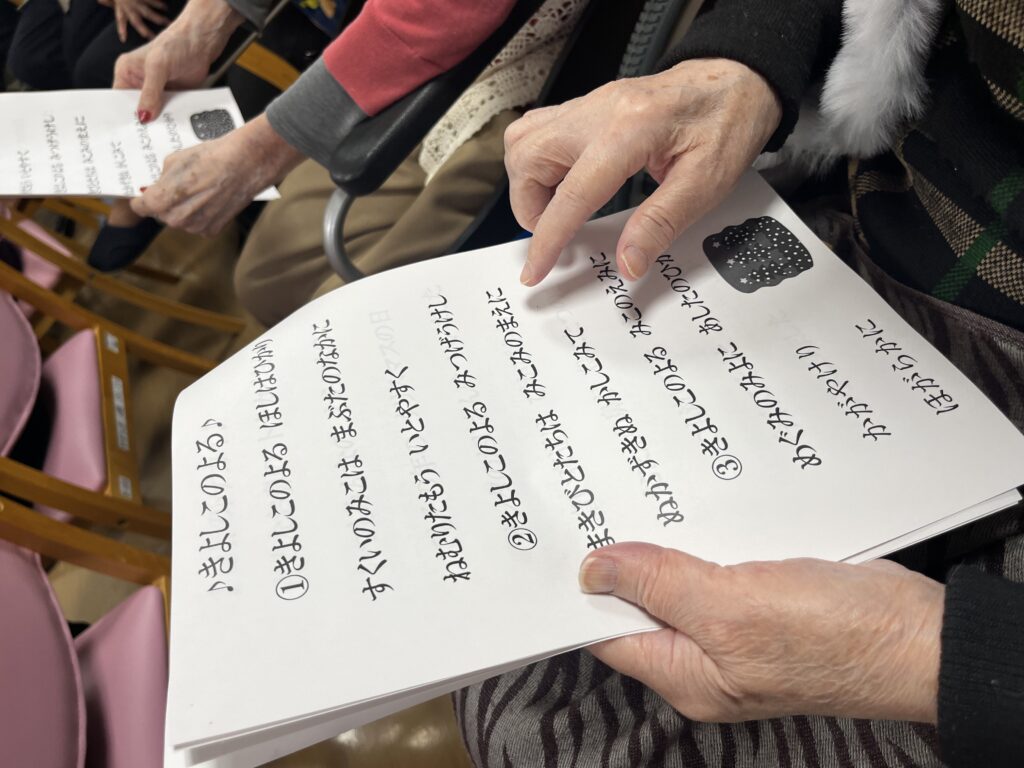 ♪きよしこのよる♪
①きよしこのよる ほしはひかり
すくいのみこは まぶたのなかに
ねむりたもう いとやすく
②きよしこのよる みつげうけし
まきびとたちは みこのまえに
ぬかずきぬ かしこみて
③きよしこのよる みこのえみに
めぐみのみよに あしたのひか
かがやけり
ほがらかに